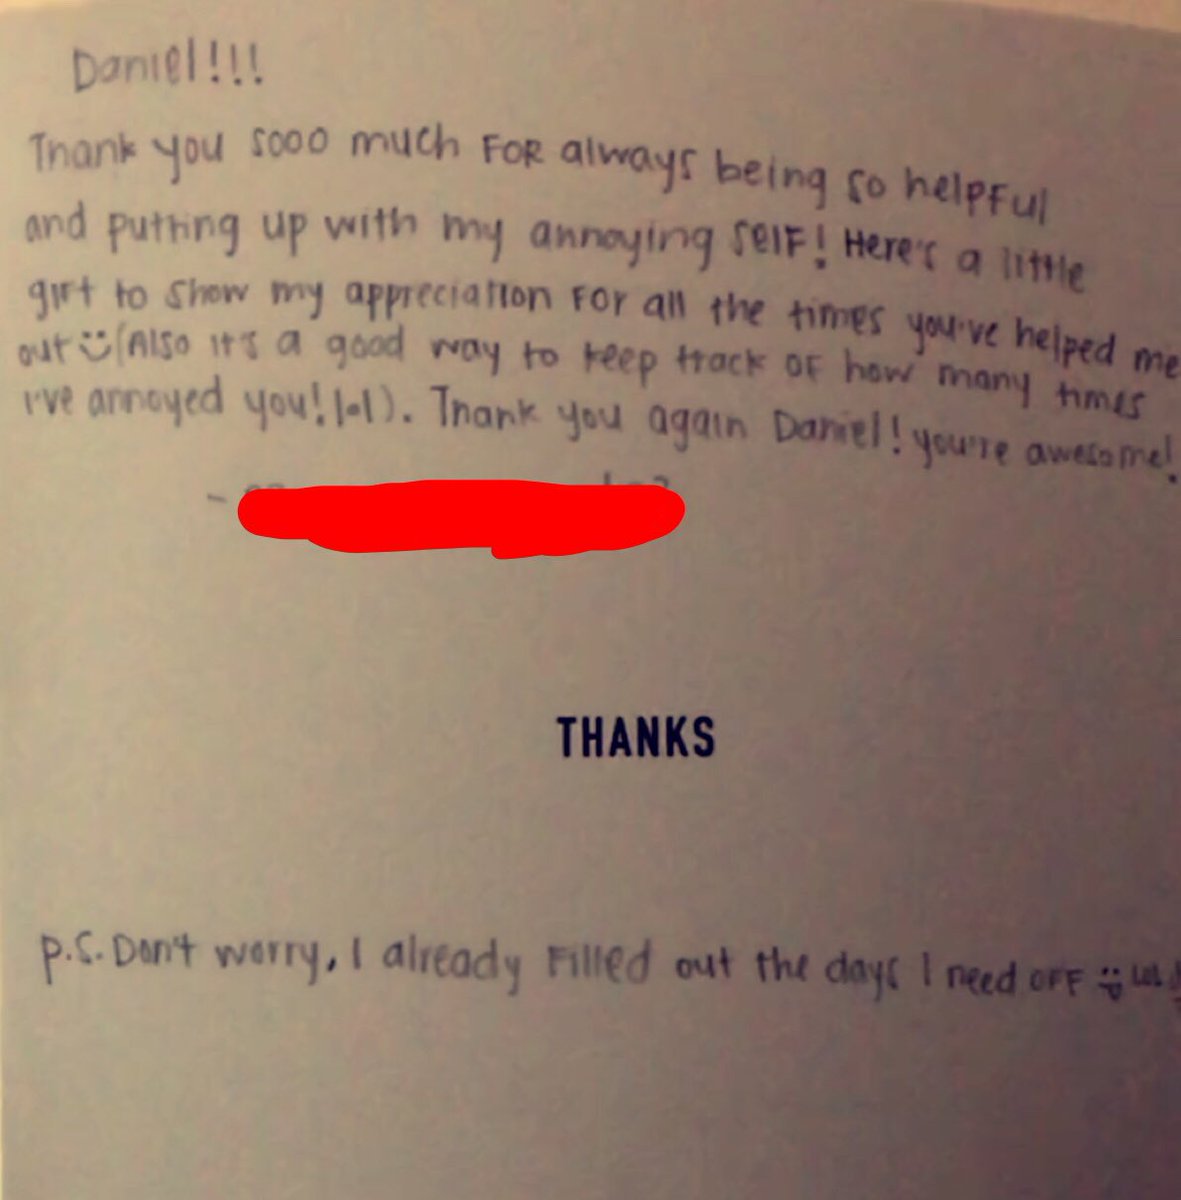 Daniel!!!
Thank you sooo much For always being so helpful
and putting up with my annoying self! Here's a little
gift to show my appreciation for all the times you've helped me
out (Also it's a good way to keep track of how many times
I've annoyed you! lol). Thank you again Daniel! you're awesome!
-
THANKS
P.S. Don't worry, I already filled out the days I need off LOL!